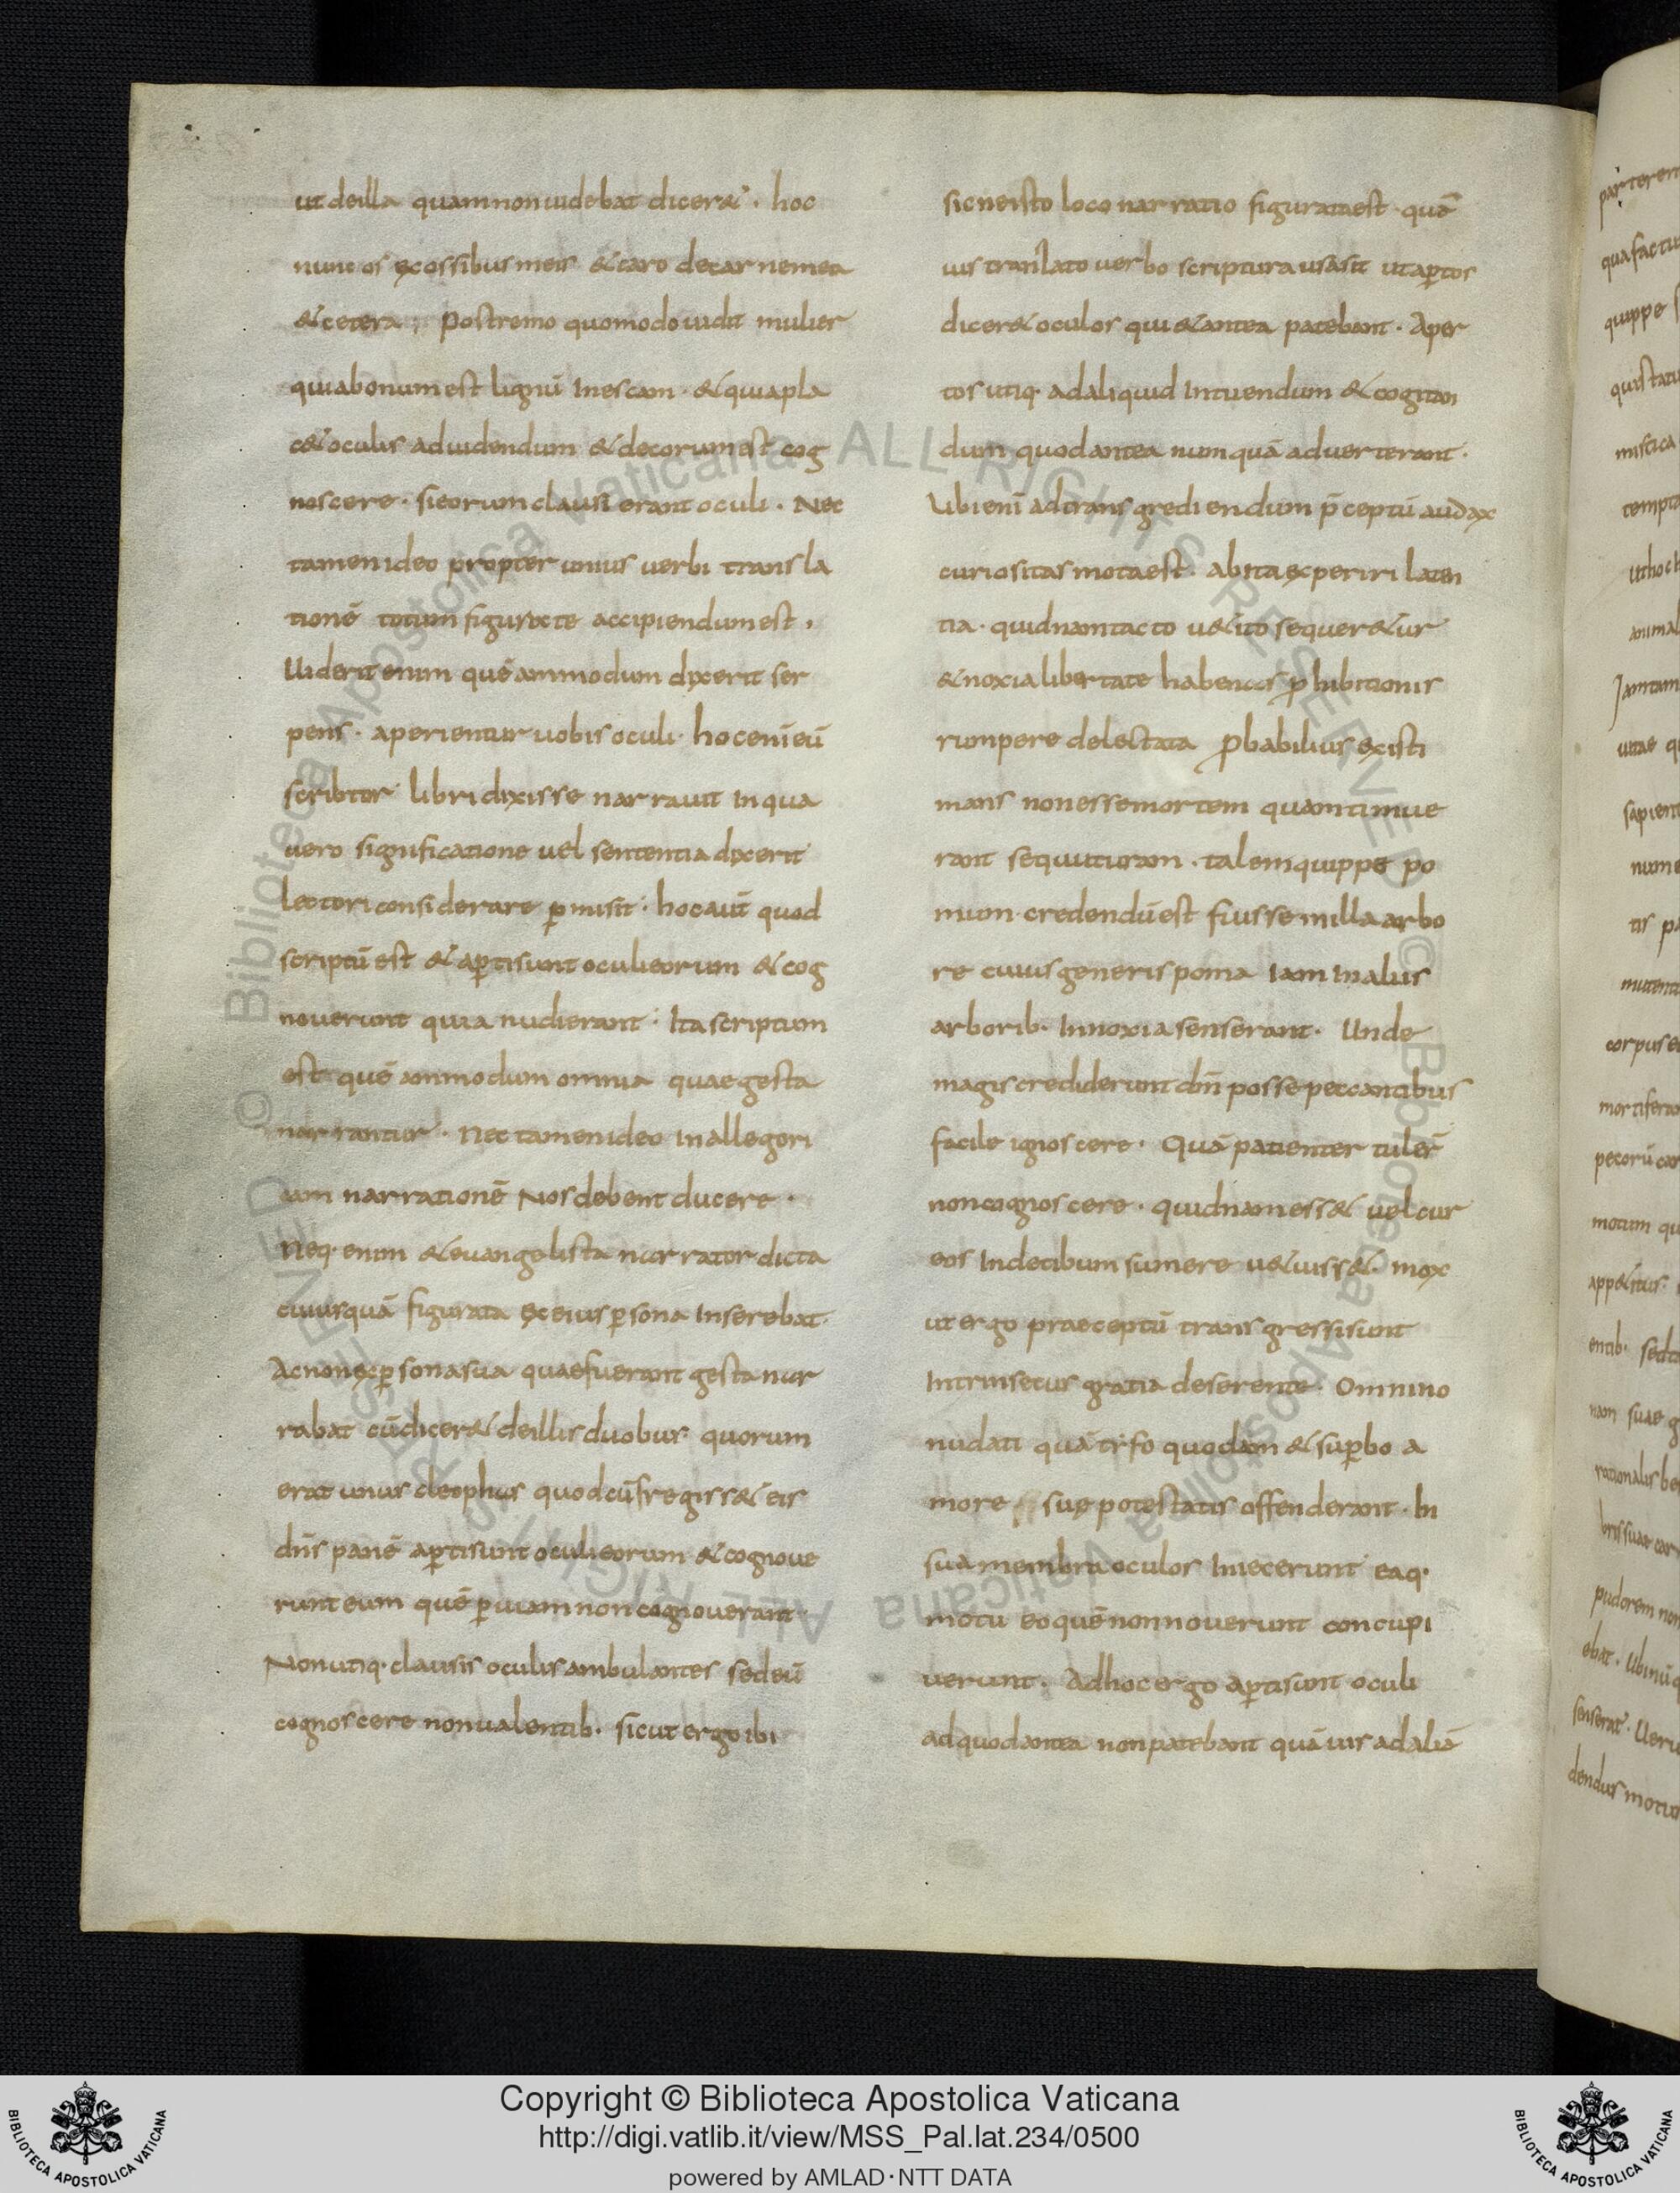 ut deilla quamnonuidebat dicer&. hoc
nunc os ęcossibusmeis &caro decarnemea
&cetera; postremo quomodo uidit mulier
quiabonumest lignū Inescam. &quiapla
c&oculis aduidendum &decorumest cog
noscere. sieorumclausi erant oculi. Nec
tamenideo propter unius uerbi transla
tionē totum figurate accipiendumest.
Uiderit enim quēammodum dixerit ser
pens. aperientur uobis oculi. hocenīeū
scribtor libri dixisse narrauit Inqua
uero significatione uel sententia dixerit
lectori considerare pmisit. hocaut̄ quod
scriptū est &aptisunt oculieorum &cog
nouerunt quia nudierant. Itascriptum
est quēammodum omnia quaegesta
narrantur. Nec tamenideo Inallegori
am narrationē Nosdebent ducere.
Neq. enim &euangelista narrator dicta
cuiusquā figurata exeius psona Inserebat.
Acnonexpsonasua quaefuerant gesta nar
rabat cūdicer& deillisduobus. quorum
erat unus cleophas quodcūfregiss& eis
dn̄s panē aptisunt oculieorum &cognoue
runt eum quē puiamnoncognouerant.
Nonutiq. clausis oculis ambulantes sedeū
cognoscere nonualentib. sicut ergoibi
sicneisto loco narratio figurataest. quā
uis translato uerbo scriptura usasit utaptos
dicer&oculos qui&antea patebant. Aper
tos utiq. adaliquid Intuendum &cogitan
dum quodantea numquā aduerterant.
Ubienī adtransgrediendum p̄ceptū audax
curiositas motaest. abitaexperiri laten
tia. quidnamtacto u&ito sequer&ur
&noxialibertate habenas phibitionis
rumpere delectata pbabilius existi
mans nonessemortem quamtimue
rant sequuturam. talemquippe po
mum credendūest fuisseinilla arbo
re cuiusgeneris poma Iam Inaliis
arborib. Innoxia senserant. Unde
magiscrediderunt dm̄ posse peccantibus
facile ignoscere. Quā patienter tuler̄
noncognoscere. quidnamess& uelcur
eos Indecibum sumere u&uiss&. mox
ut ergo praeceptū transgressisunt
Intrinsecus gratia deserente. Omnino
nudati quā tifo quodam &supbo a
more suę potestatis offenderant. In
suamembra oculos Iniecerunt eaq.
motu eoquēnonnouerunt concupi
uerunt. Adhocergo aptisunt oculi
adquodantea nonpatebant quāuis adaliā
Copyright © Biblioteca Apostolica Vaticana
http://digi.vatlib.it/view/MSS_Pal.lat.234/0500
powered by AMLAD·NTT DATA
BIBLIOTECA APOSTOLICA VATICANA
BIBLIOTECA APOSTOLICA VATICANA